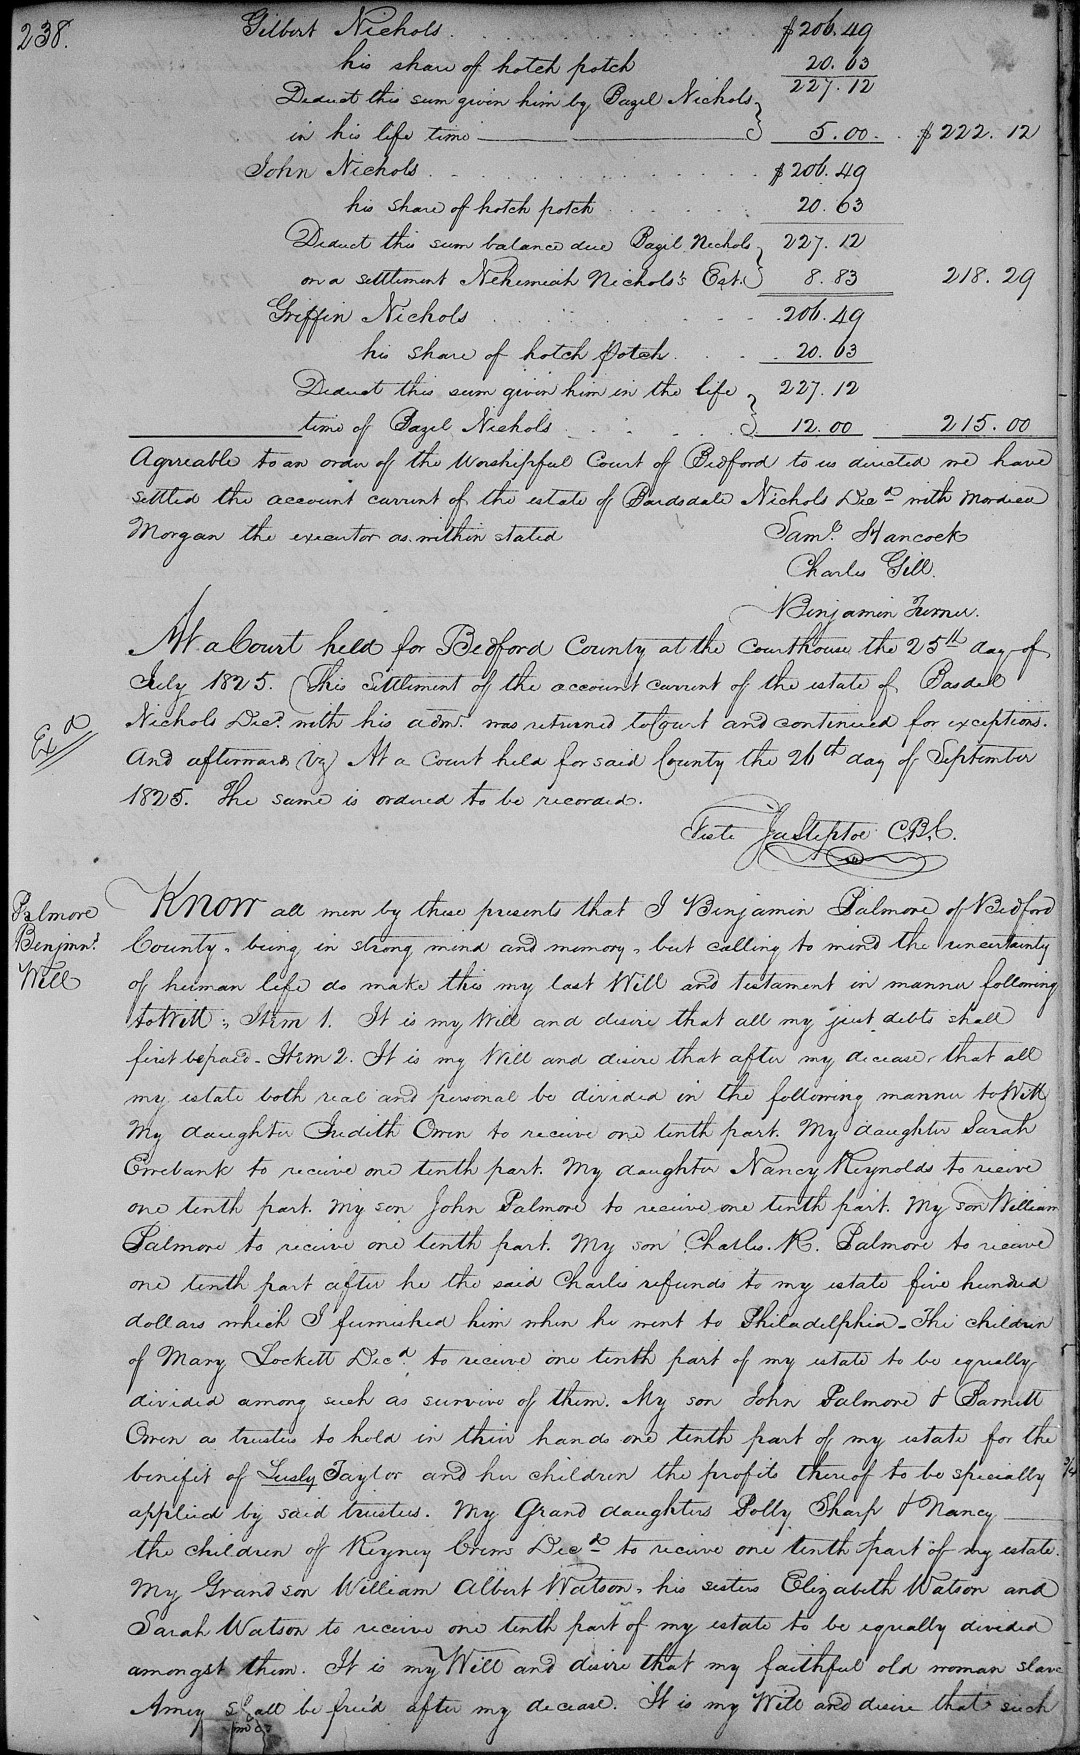 238.
Gilbert Nichols . . . . . . . . . . . . $206.49
his share of hotch potch 20.63
227.12
Deduct this sum given him by Bazel Nichols
in his life time 5.00. . $222.12
John Nichols . . . . . . . . . . . . $206.49
his share of hotch potch . . . . . 20.63
Deduct this sum balance due Bazil Nichols 227.12
on a settlement Nehemiah Nichols's Est. 8.83 218.29
Griffin Nichols . . . . . . . . 206.49
his share of hotch potch . . . 20.63
Deduct this sum given him in the life 227.12
time of Bazel Nichols . . . . 12.00 215.00
Agreeable to an order of the Worshipful Court of Bedford to us directed we have
settled the account current of the estate of Bardsdale Nichols Decd with Mordica
Morgan the executor as within stated Saml. Hancock
Charles Gill.
Benjamin Turner.
At a Court held for Bedford County at the Courthouse the 25th day of
July 1825. This Settlement of the account current of the estate of Basdel
Nichols Decd. with his admr. was returned to Court and continued for exceptions.
Exd
And afterwards (Vz) At a Court held for said County the 26th day of September
1825. The same is ordered to be recorded.
Teste Ja Steptoe C.B.C.
Palmore
Benjmn's
Will
Know all men by these presents that I Benjamin Palmore of Bedford
County, being in strong mind and memory, but calling to mind the uncertainty
of human life do make this my last Will and testament in manner following
to Wit:, Item 1. It is my Will and desire that all my just debts shall
first be paid - Item 2. It is my Will and desire that after my decease, that all
my estate both real and personal be divided in the following manner to Wit
My daughter Judith Owen to receive one tenth part. My daughter Sarah
Ewebank to receive one tenth part. My daughter Nancy Reynolds to receive
one tenth part. My son John Palmore to receive one tenth part. My son William
Palmore to receive one tenth part. My son Charles. R. Palmore to receive
one tenth part after he the said Charles refunds to my estate five hundred
dollars which I furnished him when he went to Philadelphia - The children
of Mary Lockett Decd. to receive one tenth part of my estate to be equally
divided among such as survive of them. My son John Palmore & Barnett
Owen as trustees to hold in their hands one tenth part of my estate for the
benifit of Lusby Taylor and her children the profits thereof to be specially
applied by said trustees. My Grand daughters Polly Sharp & Nancy
the children of Keyney Crews Decd to receive one tenth part of my estate.
My Grand son William Albert Watson, his sisters Elizabeth Watson and
Sarah Watson to receive one tenth part of my estate to be equally divided
amongst them. It is my Will and desire that my faithful old woman slave
Amey shall be free'd after my decease. It is my Will and desire that such